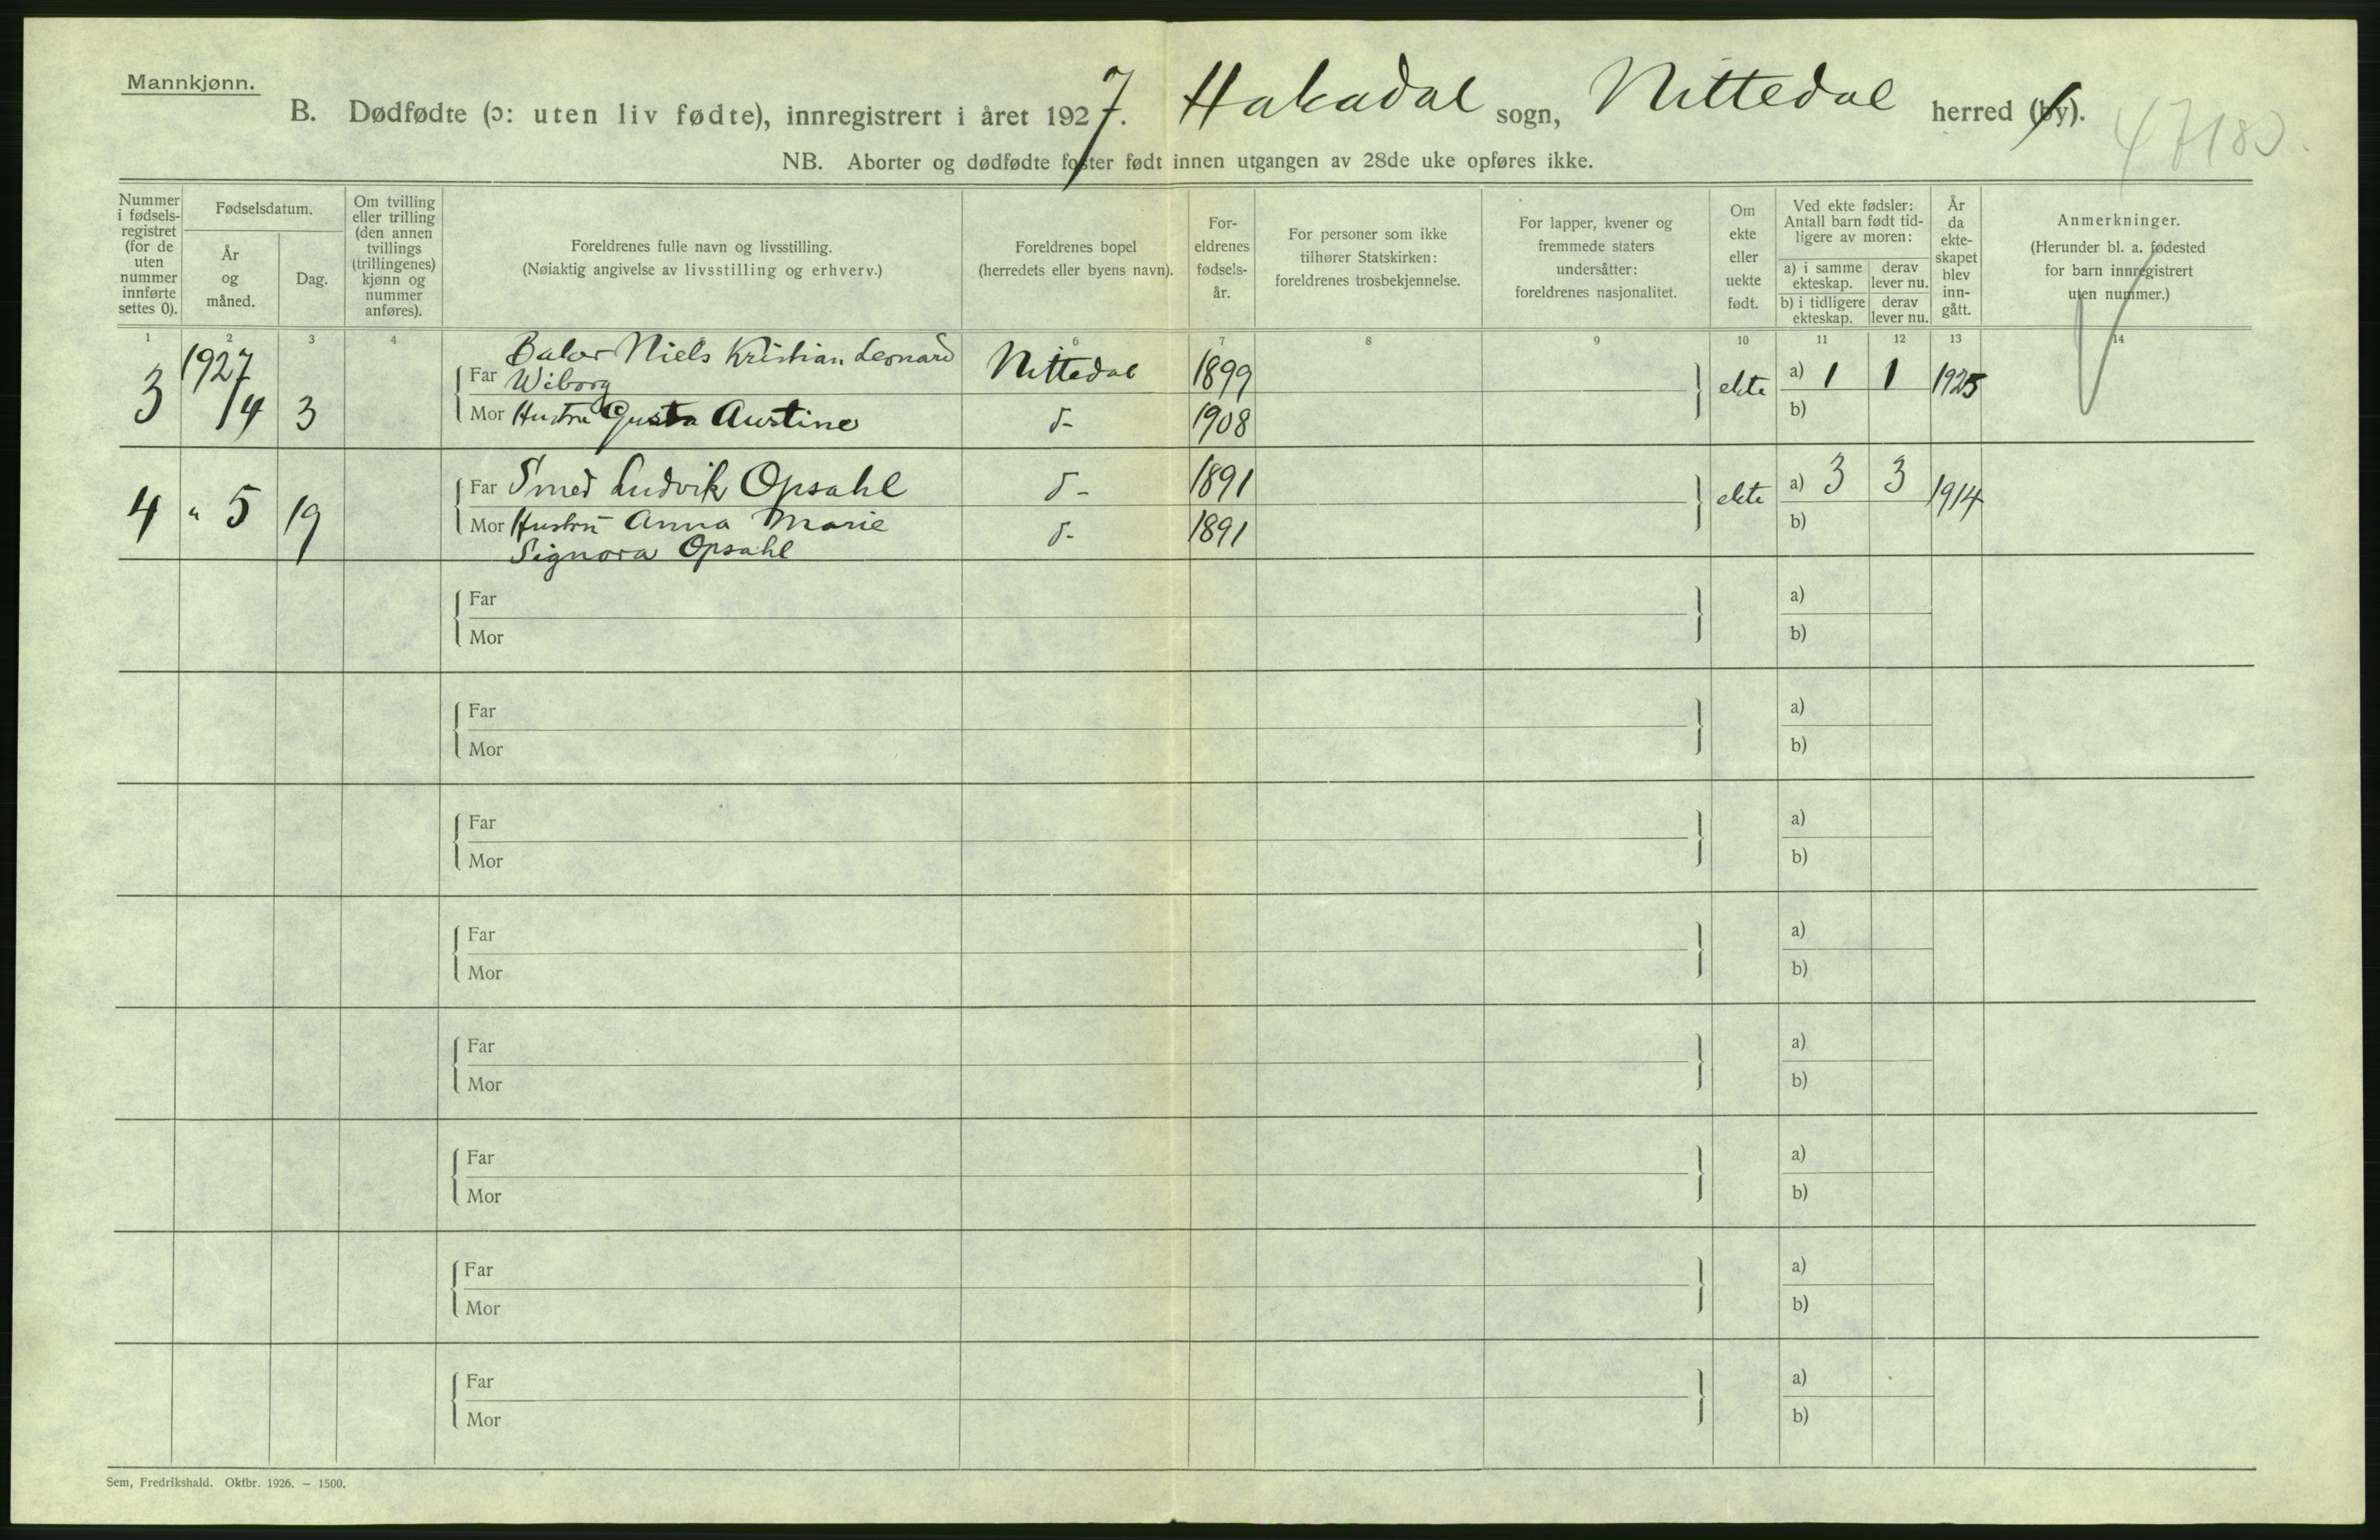 Mannkjønn.
B. Dødfødte (ɔ: uten liv fødte), innregistrert i året 1927. Hakadal sogn, Nittedal herred (by).
47183.
NB. Aborter og dødfødte foster født innen utgangen av 28de uke opføres ikke.
Nummer i fødsels-registret (for de uten nummer innførte settes 0).
Fødselsdatum.
År og måned.
Dag.
Om tvilling eller trilling (den annen tvillings (trillingenes) kjønn og nummer anføres).
Foreldrenes fulle navn og livsstilling.
(Nøiaktig angivelse av livsstilling og erhverv.)
Foreldrenes bopel
(herredets eller byens navn).
For-eldrenes fødsels-år.
For personer som ikke tilhører Statskirken: foreldrenes trosbekjennelse.
For lapper, kvener og fremmede staters undersåtter: foreldrenes nasjonalitet.
Om ekte eller uekte født.
Ved ekte fødsler: Antall barn født tid-ligere av moren:
a) i samme ekteskap.
derav lever nu.
b) i tidligere ekteskap.
derav lever nu.
År da ekte-skapet blev inn-gått.
Anmerkninger.
(Herunder bl. a. fødested for barn innregistrert uten nummer.)
1 2 3 4 6 7 8 9 10 11 12 13 14
3 1927 /4 3 Far Baker Niels Kristian Leonard Wiborg Nittedal 1899 ekte a) 1 1 1925
Mor Hustru Gusta Austine d- 1908 b)
4 " 5 19 Far Smed Ludvik Opsahl d- 1891 ekte a) 3 3 1914
Mor Hustru Anna Marie d- 1891 b)
Signora Opsahl
Far a)
Mor b)
Far a)
Mor b)
Far a)
Mor b)
Far a)
Mor b)
Far a)
Mor b)
Far a)
Mor b)
Far a)
Mor b)
Far a)
Mor b)
Sem, Fredrikshald. Oktbr. 1926. – 1500.